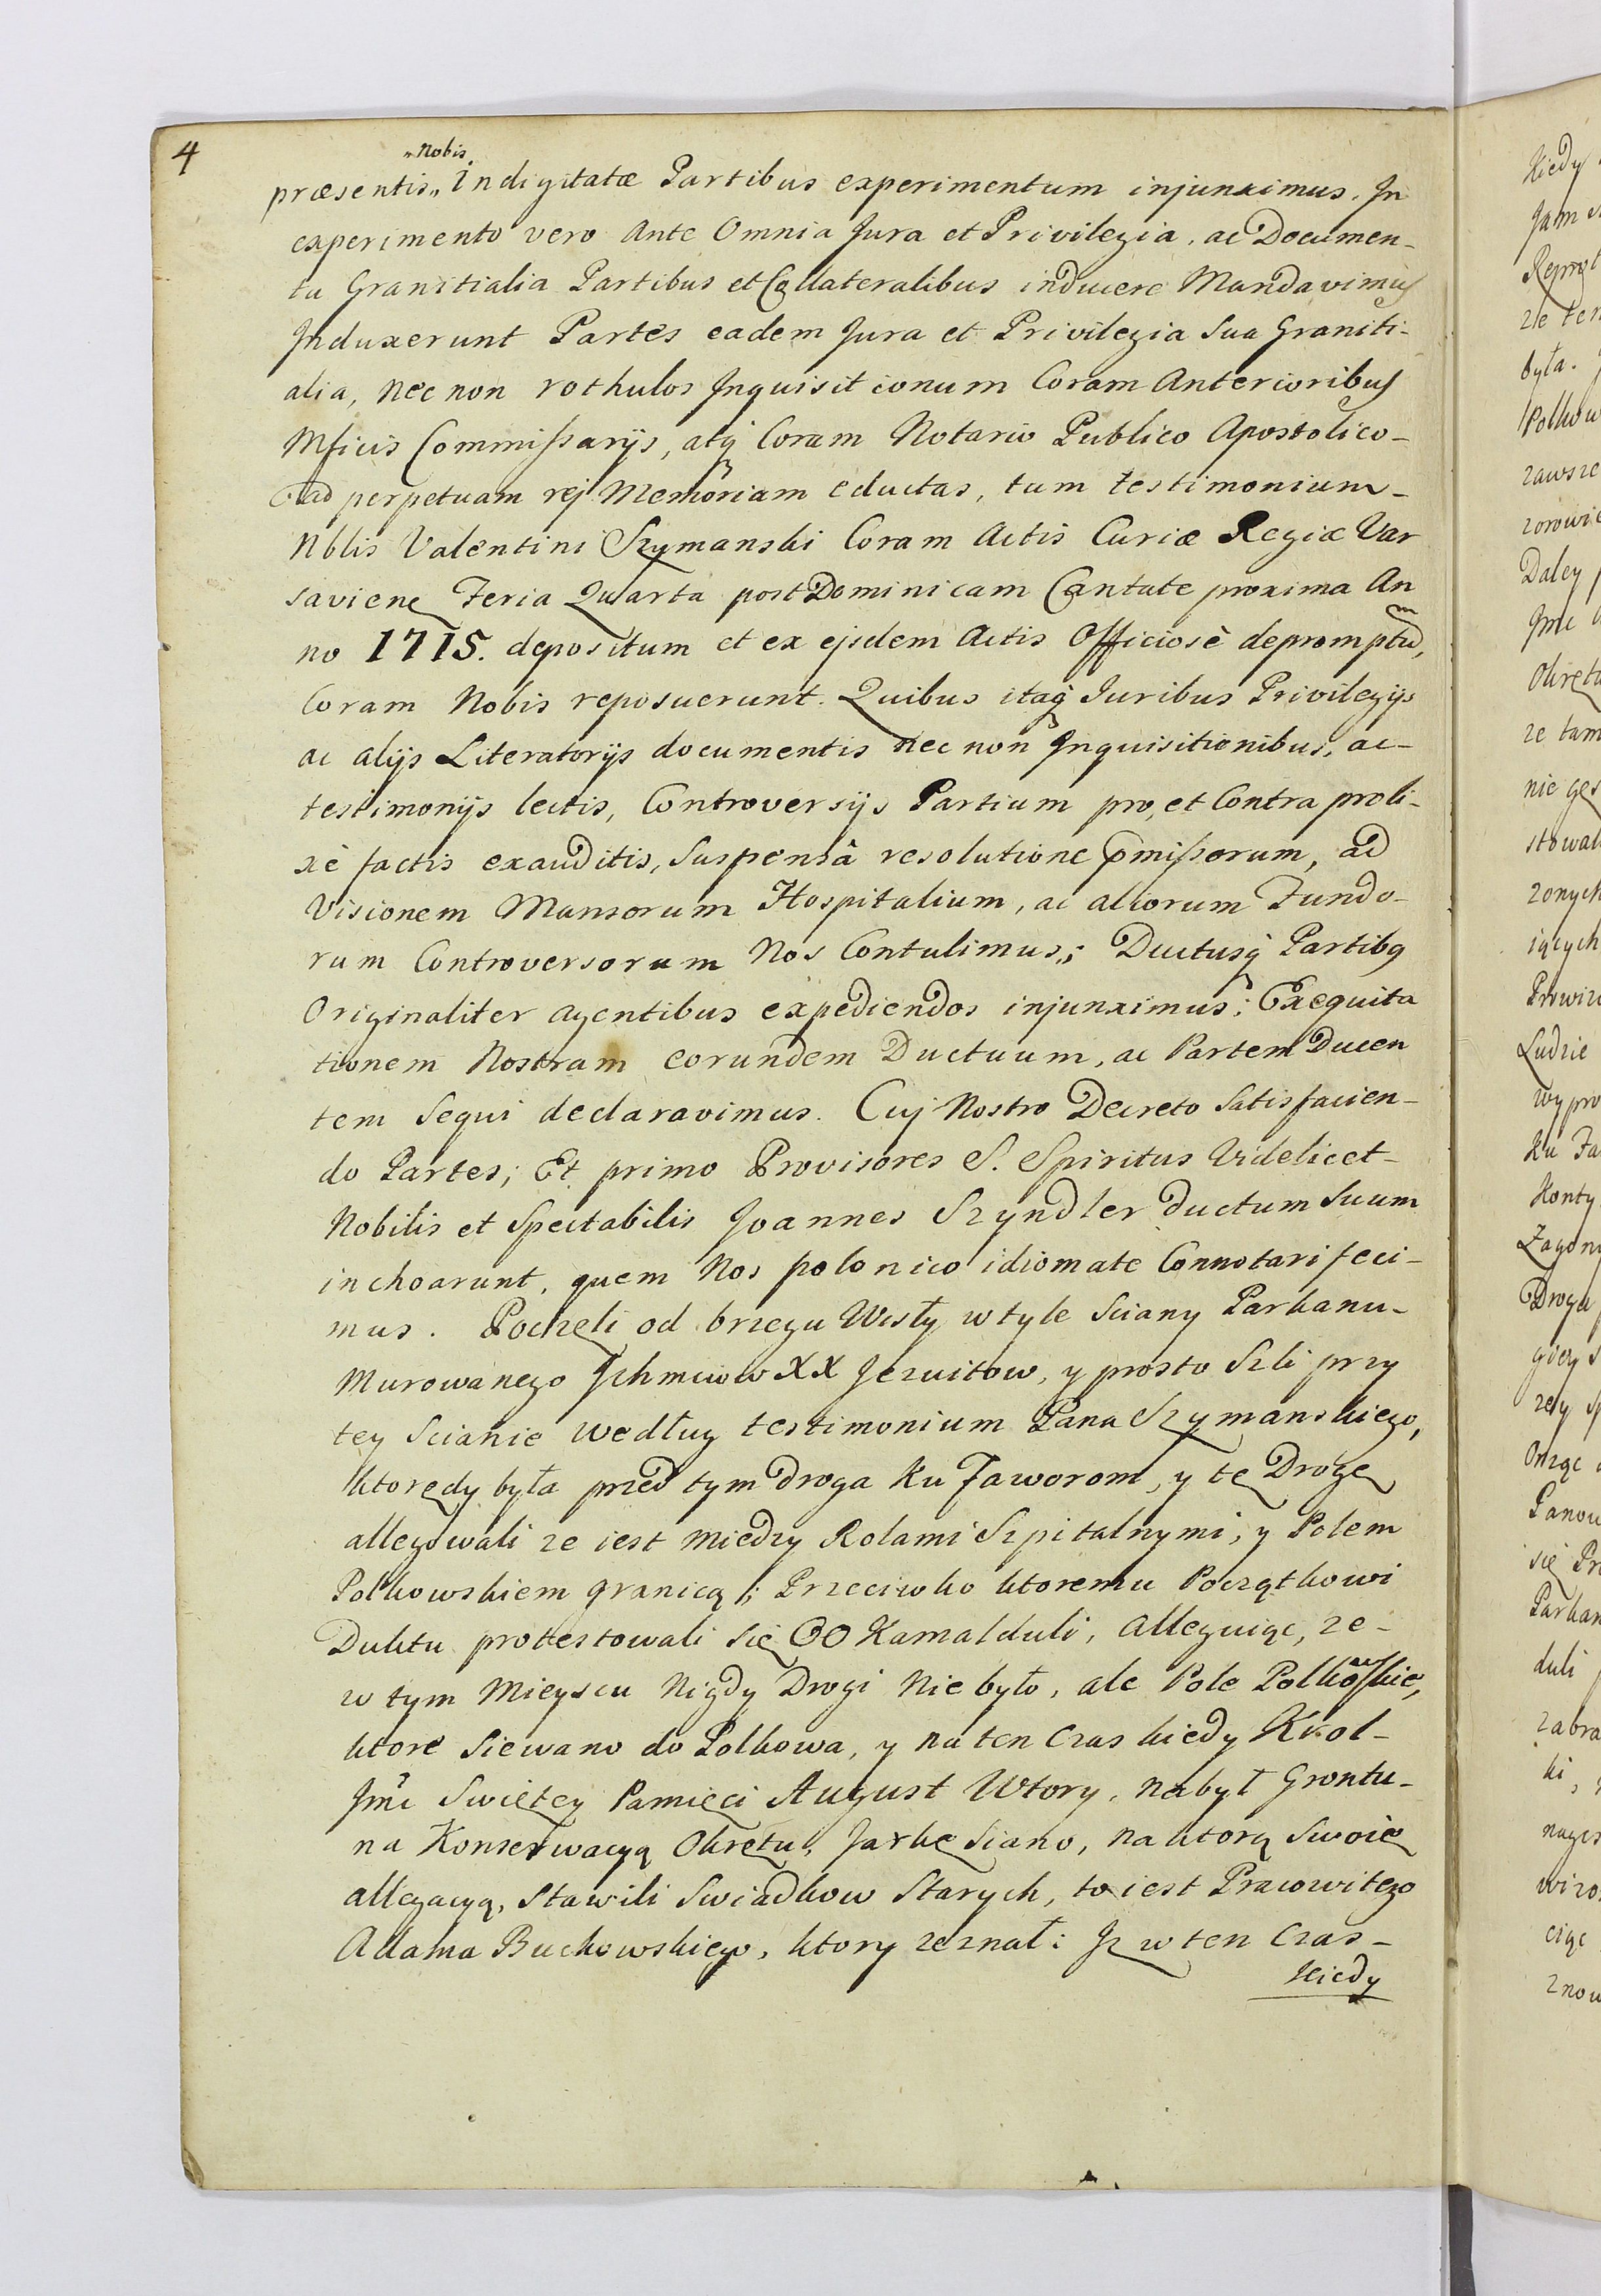 4
"Nobis
præsentis,, Indigitatæ Partibus experimentum injunximus. In
experimento vero Ante Omnia Jura et Privilegia, ac Documen-
ta Granitialia Partibus et Collateralibus inducere Mandavimus
Induxerunt Partes eadem Jura et Privilegia Sua Graniti-
alia, nec non rothulos Inquisitionum Coram Anterioribus
Mficis Commissarijs, atq́ Coram Notario Publico Apostolico-
ad perpetuam rej Memoriam eductas, tum testimonium-
Nblis Valentini Szymanski Coram Actis Curiæ Regiæ Var
saviene Feria Quarta post Dominicam Cantate proxima An
no 1715. depositum et ex ejsdem Actis Officiosè depromptũ,
Coram Nobis reposuerunt. Quibus itaq́ Juribus Privilegijs
ac alijs Literatorijs documentis nec non Inquisitionibus, ac-
testimonijs lectis, Controversijs Partium pro, et Contra proli-
xè factis exauditis, Suspensâ resolutione p̃missorum, ad
Visionem Mansorum Hospitalium, ac aliorum Fundo-
rum Controversorum Nos Contulimus,; Ductusq́ Partibq
Originaliter agentibus expediendos injunximus; Exequita
tionem Nostram eorundem Ductuum, ac Partem Ducen
tem Sequi declaravimus. Cuj Nostro Decreto Satisfacien-
do Partes; Et primo Provisores S. Spiritus Videlicet-
Nobilis et Spectabilis Joannes Szyndler ductum Suum
inchoarunt, quem Nos polonico idiomate Connotari feci-
mus. Poczeli od brzegu Wisły w tyle Sciany Parkanu-
Murowanego Ichmciow XX Jezuitow, y prosto Szli przy
tey Scianie według testimonium Pana Szymanskiego,
ktorędy była przed tym droga ku Jaworom, y tę Drogę
allegowali ze iest miedzy Rolami Szpitalnymi, y Polem
Polkowskiem granicą; Przeciwko ktoremu Początkowi
Duktu protestowali się OO Kamalduli, Alleguiąc, ze-
w tym Mieyscu Nigdy Drogi Nie było, ale Pole Polkowskie,
ktore Siewano do Polkowa, y na ten Czas kiedy Krol-
Jmć Swiętey Pamięci August Wtory, nabył Grontu-
na Konserwacyą Okrętu, Jarkę Siano, na ktorą Swoię
allegacyą, Stawili Swiadkow Starych, to iest Pracowitego
Adama Buckowskiego, ktory zeznał: Jz w ten Czas-
Kiedy